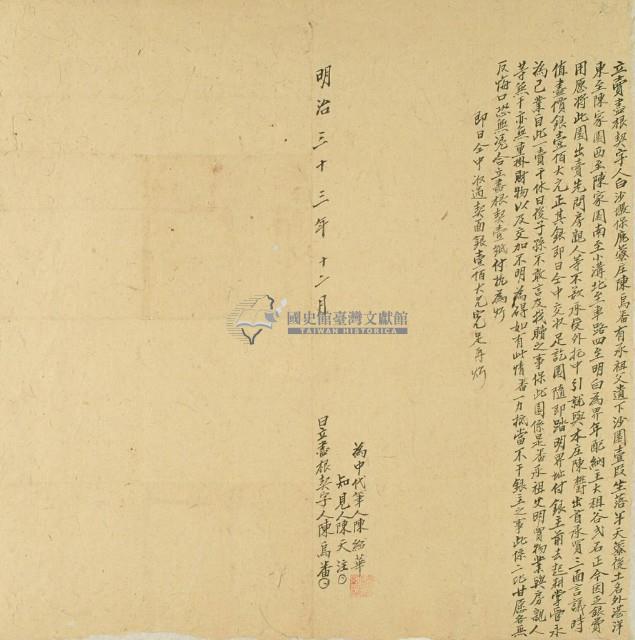 立賣盡根契字人白沙墩保麂藔庄陳烏番有承祖父遺下沙園壹段坐落羊天藔後土名外港洋
東至陳家園西至陳家園南至小溝北至車路四至明白為界年配納主大租谷弍石正今因乏銀費
用愿將此園出賣先問房親人等不欲承受外托中引就與本庄陳出首承買三面言議時
值盡價銀壹佰大元正其銀即日仝中交收足訖園隨即踏明界址付銀主前去起耕掌管永
為己業自此一賣千休日後子孫不敢言及找贖之事保此園係是番承祖父明買物業與房親人
等無干亦無重掛財物以及交加不明為碍如有此情番一力抵當不干銀主之事此係二比甘愿各無
反悔口恐無憑合立盡根契壹紙付执為炤
即日仝中收過契面銀壹佰大元完足再炤
明治三十三年十二月
國史館臺灣文獻館
TAIWAN HISTORICA
為中代筆人陳華
知見人陳天注
日立盡根契字人陳烏番